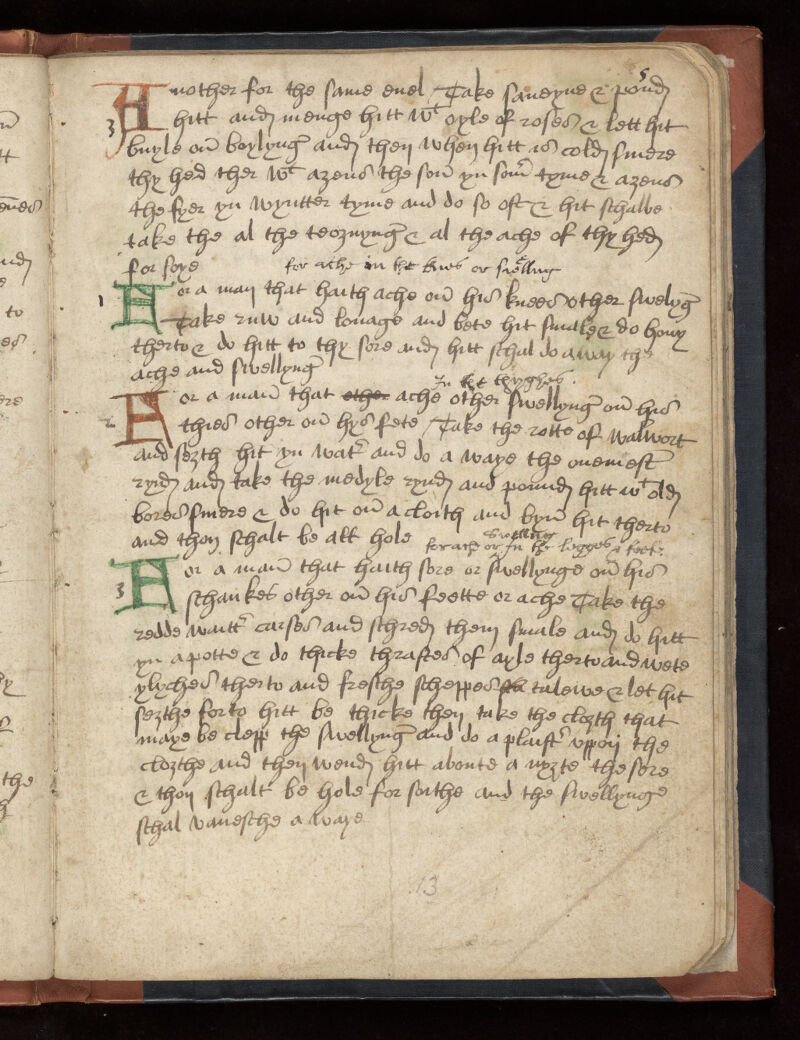 5
Another for the same euel Take saueyne & pound
3
hitt and menge hitt wt oyle of roses & lett hit
buyle on boylyng and then when hitt is cold smere
thy hed ther wt azens the son yn som tyme & azens
the fyer yn wyntter tyme and do so oft & hit schalbe
take the al the teoznyng & al the ache of thy hed
for soye
for ache in the knes or swelling
1
For a man that haith ache on his knees other swelyng
Take ruw and louage and bete hit smale & do hony
therto & do hitt to thy sore and hitt schal do away the
ache and swellyng
In the thyghes
2
For a man that other ache other swellyng on his
thies other on hys fete Take the rotte of walwort
and sezth hit yn watr and do a waye the ouemest
rynd and take the medyle rynd and pound hitt wt old
bores smere & do hit on a cloith and byn hit therto
and thou schalt be all hole
for ache or swelling In the legges & feet
3
For a man that haith sore or swellynge on his
schankes other on his feette or ache Take the
redde waittr carses and schred them smale and do hitt
yn a potte & do thicke thrastes of ayle therto and wete
ylyches therto and fresche scheppes talewe & let hit
sezthe forto hitt be thicke then take the clozth that
maye be clepp the swellyng and do a plaistr vpon the
clozthe and then wend hitt aboute a nyzte the sore
& thou schalt be hole for sothe and the swellynge
schal vanesche a waye
13